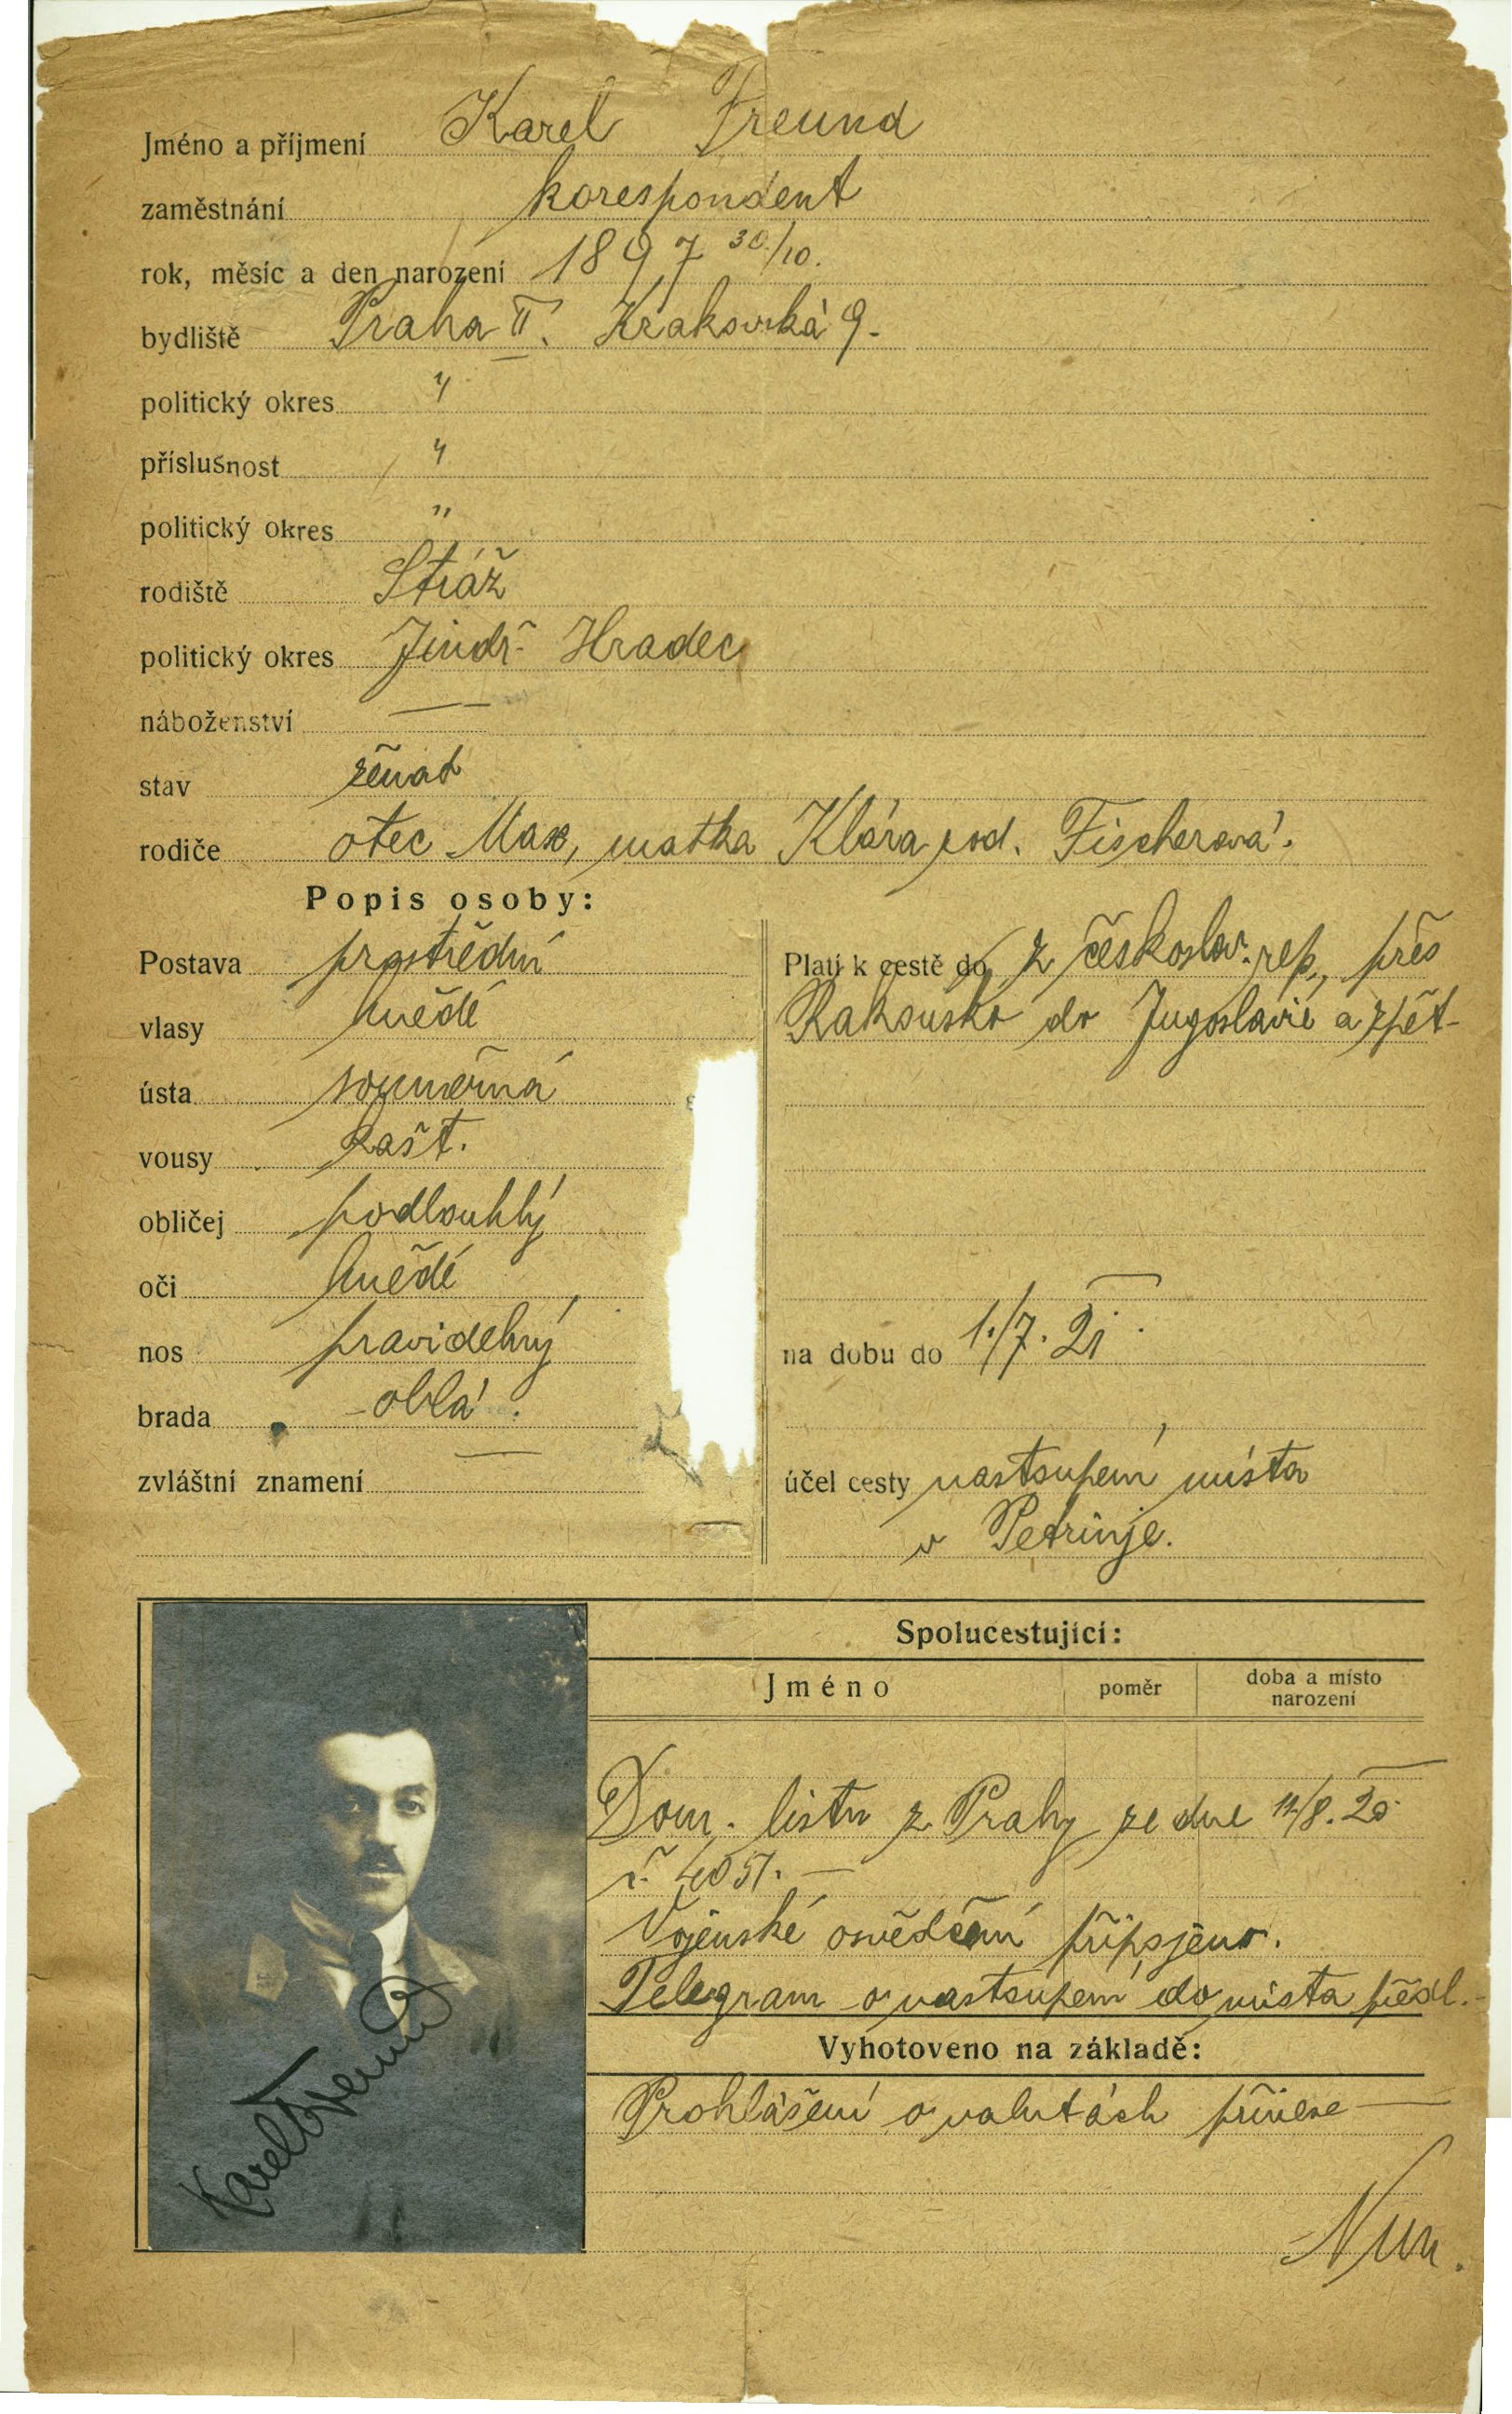 Jméno a příjmení Karel Freund
zaměstnání korespondent
rok, měsíc a den narození 1897 30./10.
bydliště Praha II. Krakovská 9.
politický okres "
příslušnost "
politický okres "
rodiště Stráž
politický okres Jindř. Hradec
náboženství —
stav ženat
rodiče otec Max, matka Klára rod. Fischerová.
Popis osoby:
Postava prostřední
vlasy hnědé
ústa souměrná
vousy kašt.
obličej podlouhlý
oči hnědé
nos pravidelný
brada oblá.
zvláštní znamení —
Platí k cestě do z českoslov. rep., přes
Rakousko do Jugoslavie a zpět
na dobu do 1./7. 21.
účel cesty nastoupení místa
v Petrinje.
Spolucestující:
Jméno poměr doba a místo narození
Dom. listu z Prahy ze dne /8. 20.
č. 4051. —
Vojenské osvědčení připojeno.
Telegram o nastoupení do místa předl. -
Vyhotoveno na základě:
Prohlášení o valutách přinese —
Karel Freund